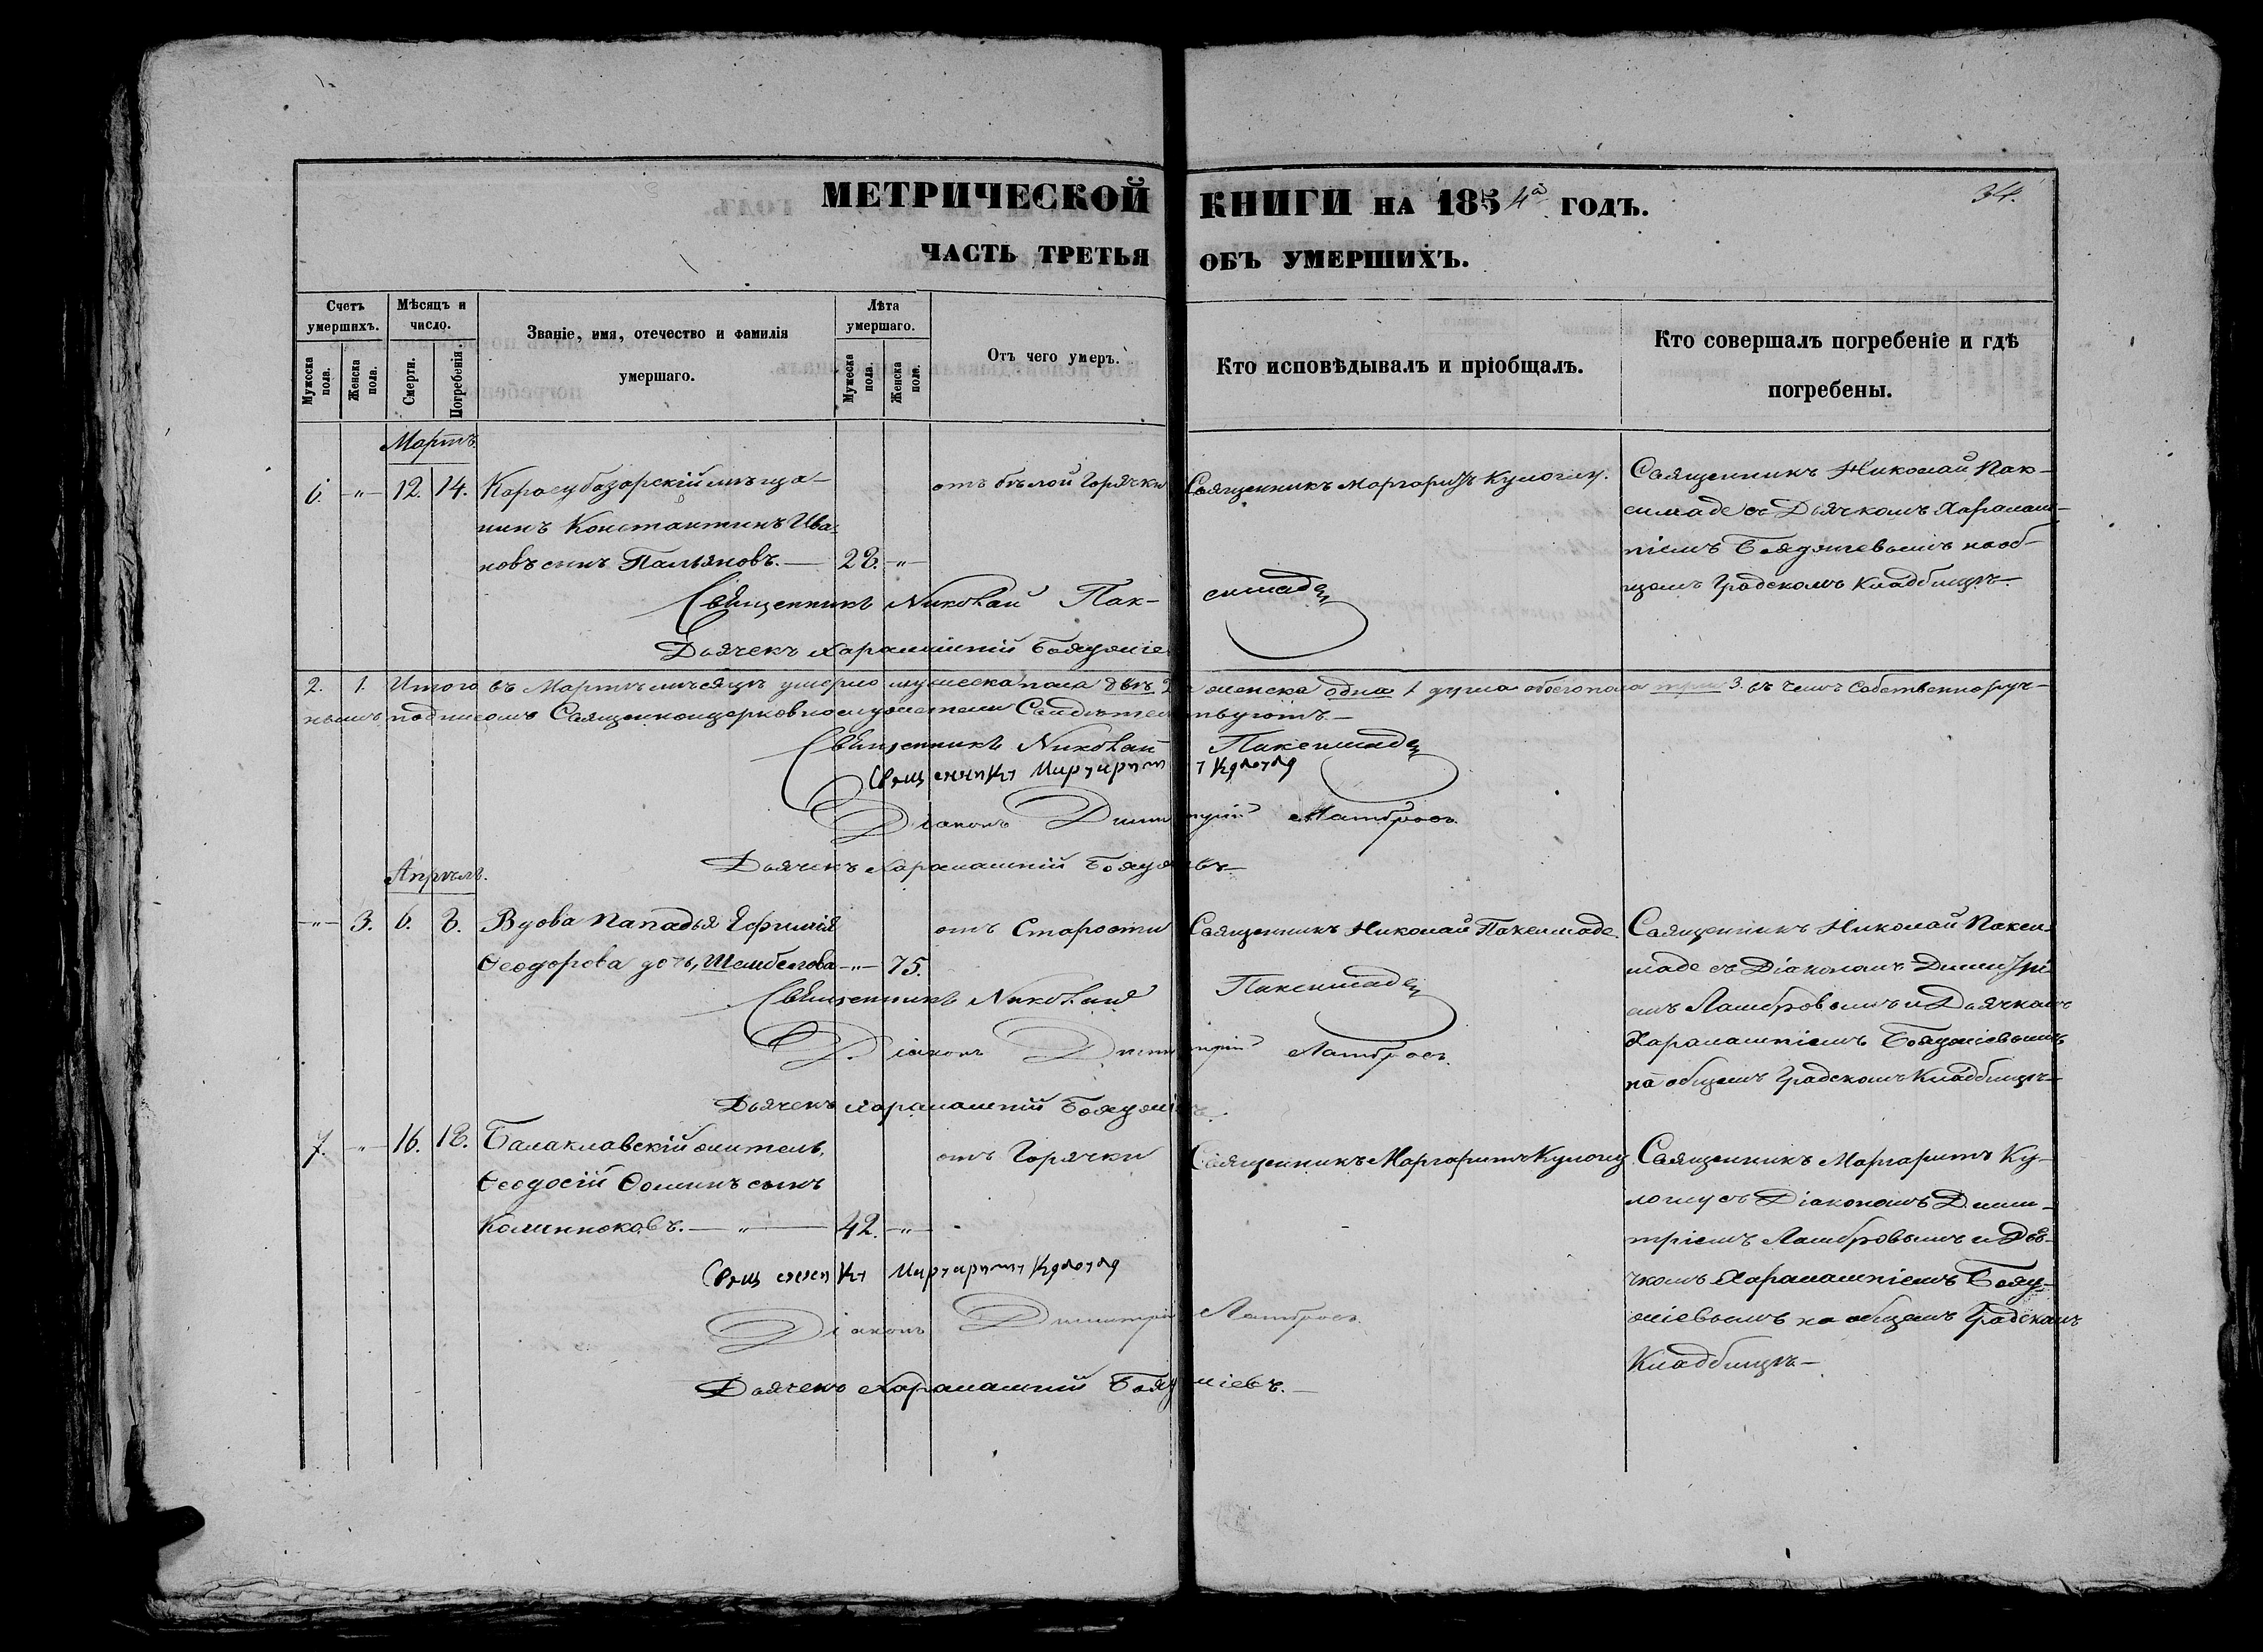 34.
МЕТРИЧЕСКОЙ КНИГИ НА 1854ᵃ ГОДЪ.
ЧАСТЬ ТРЕТЬЯ ОБЪ УМЕРШИХЪ.
Счетъ умершихъ.
Мужеска пола.
Женска пола.
Мѣсяцъ и число.
Смерти.
Погребенія.
Званіе, имя, отечество и фамилія
умершаго.
Лѣта умершаго.
Мужеска пола.
Женска пола.
Отъ чего умеръ.
Кто исповѣдывалъ и пріобщалъ.
Кто совершалъ погребеніе и гдѣ
погребены.
Мартъ.
6. -„- 12. 14. Карасубазарскій мѣща-
нинъ Константинъ Ива-
новъ сынъ Пальяновъ. — 28. -„-
отъ бѣлой Горячки
Священникъ Маргаритъ Кулоглу.
Священникъ Николай Пак-
симаде съ Дьячкомъ Харалам-
піемъ на об-
щемъ Градскомъ Кладбищѣ.
Священникъ Николай Пак- симаде
Дьячекъ Харалампій
2. 1. Итого въ Мартѣ мѣсяцѣ умерло мужеска пола двѣ 2 женска одна 1 душа обоего пола три 3. въ чемъ Собственноруч-
нымъ подписомъ Священноцерковнослужители Свидѣтельствуютъ.—
Священникъ Николай Паксимаде
Священникъ Маргаритъ Кулоглу
Діаконъ Димитрій Ламбровъ
Дьячекъ Харалампій
Апрѣль.
-„- 3. 6. 8. Вдова Пападья Ефимія
Ѳеодорова дочь, Шембелова -„- 75.
отъ Старости
Священникъ Николай Паксимаде.
Священникъ Николай Пакси-
маде съ Діакономъ Димитрі-
емъ Ламбровымъ и Дьячкомъ
Харалампіемъ
на общемъ Градскомъ Кладбищѣ—
Священникъ Николай Паксимаде
Діаконъ Димитрій Ламбровъ.
Дьячекъ Харалампій
7. -„- 16. 18. Балаклавскій житель,
Ѳеодосій Ѳоминъ сынъ
Калинноковъ. — „ — 42. -„-
отъ Горячки
Священникъ Маргаритъ Кулоглу
Священникъ Маргаритъ Ку-
логлу съ Діакономъ Дими-
тріемъ Ламбровымъ и Дья-
чкомъ Харалампіемъ
на общемъ Градскомъ
Кладбищѣ—
Священникъ Маргаритъ Кулоглу
Діаконъ Димитрій Ламбровъ.
Дьячекъ Харалампій